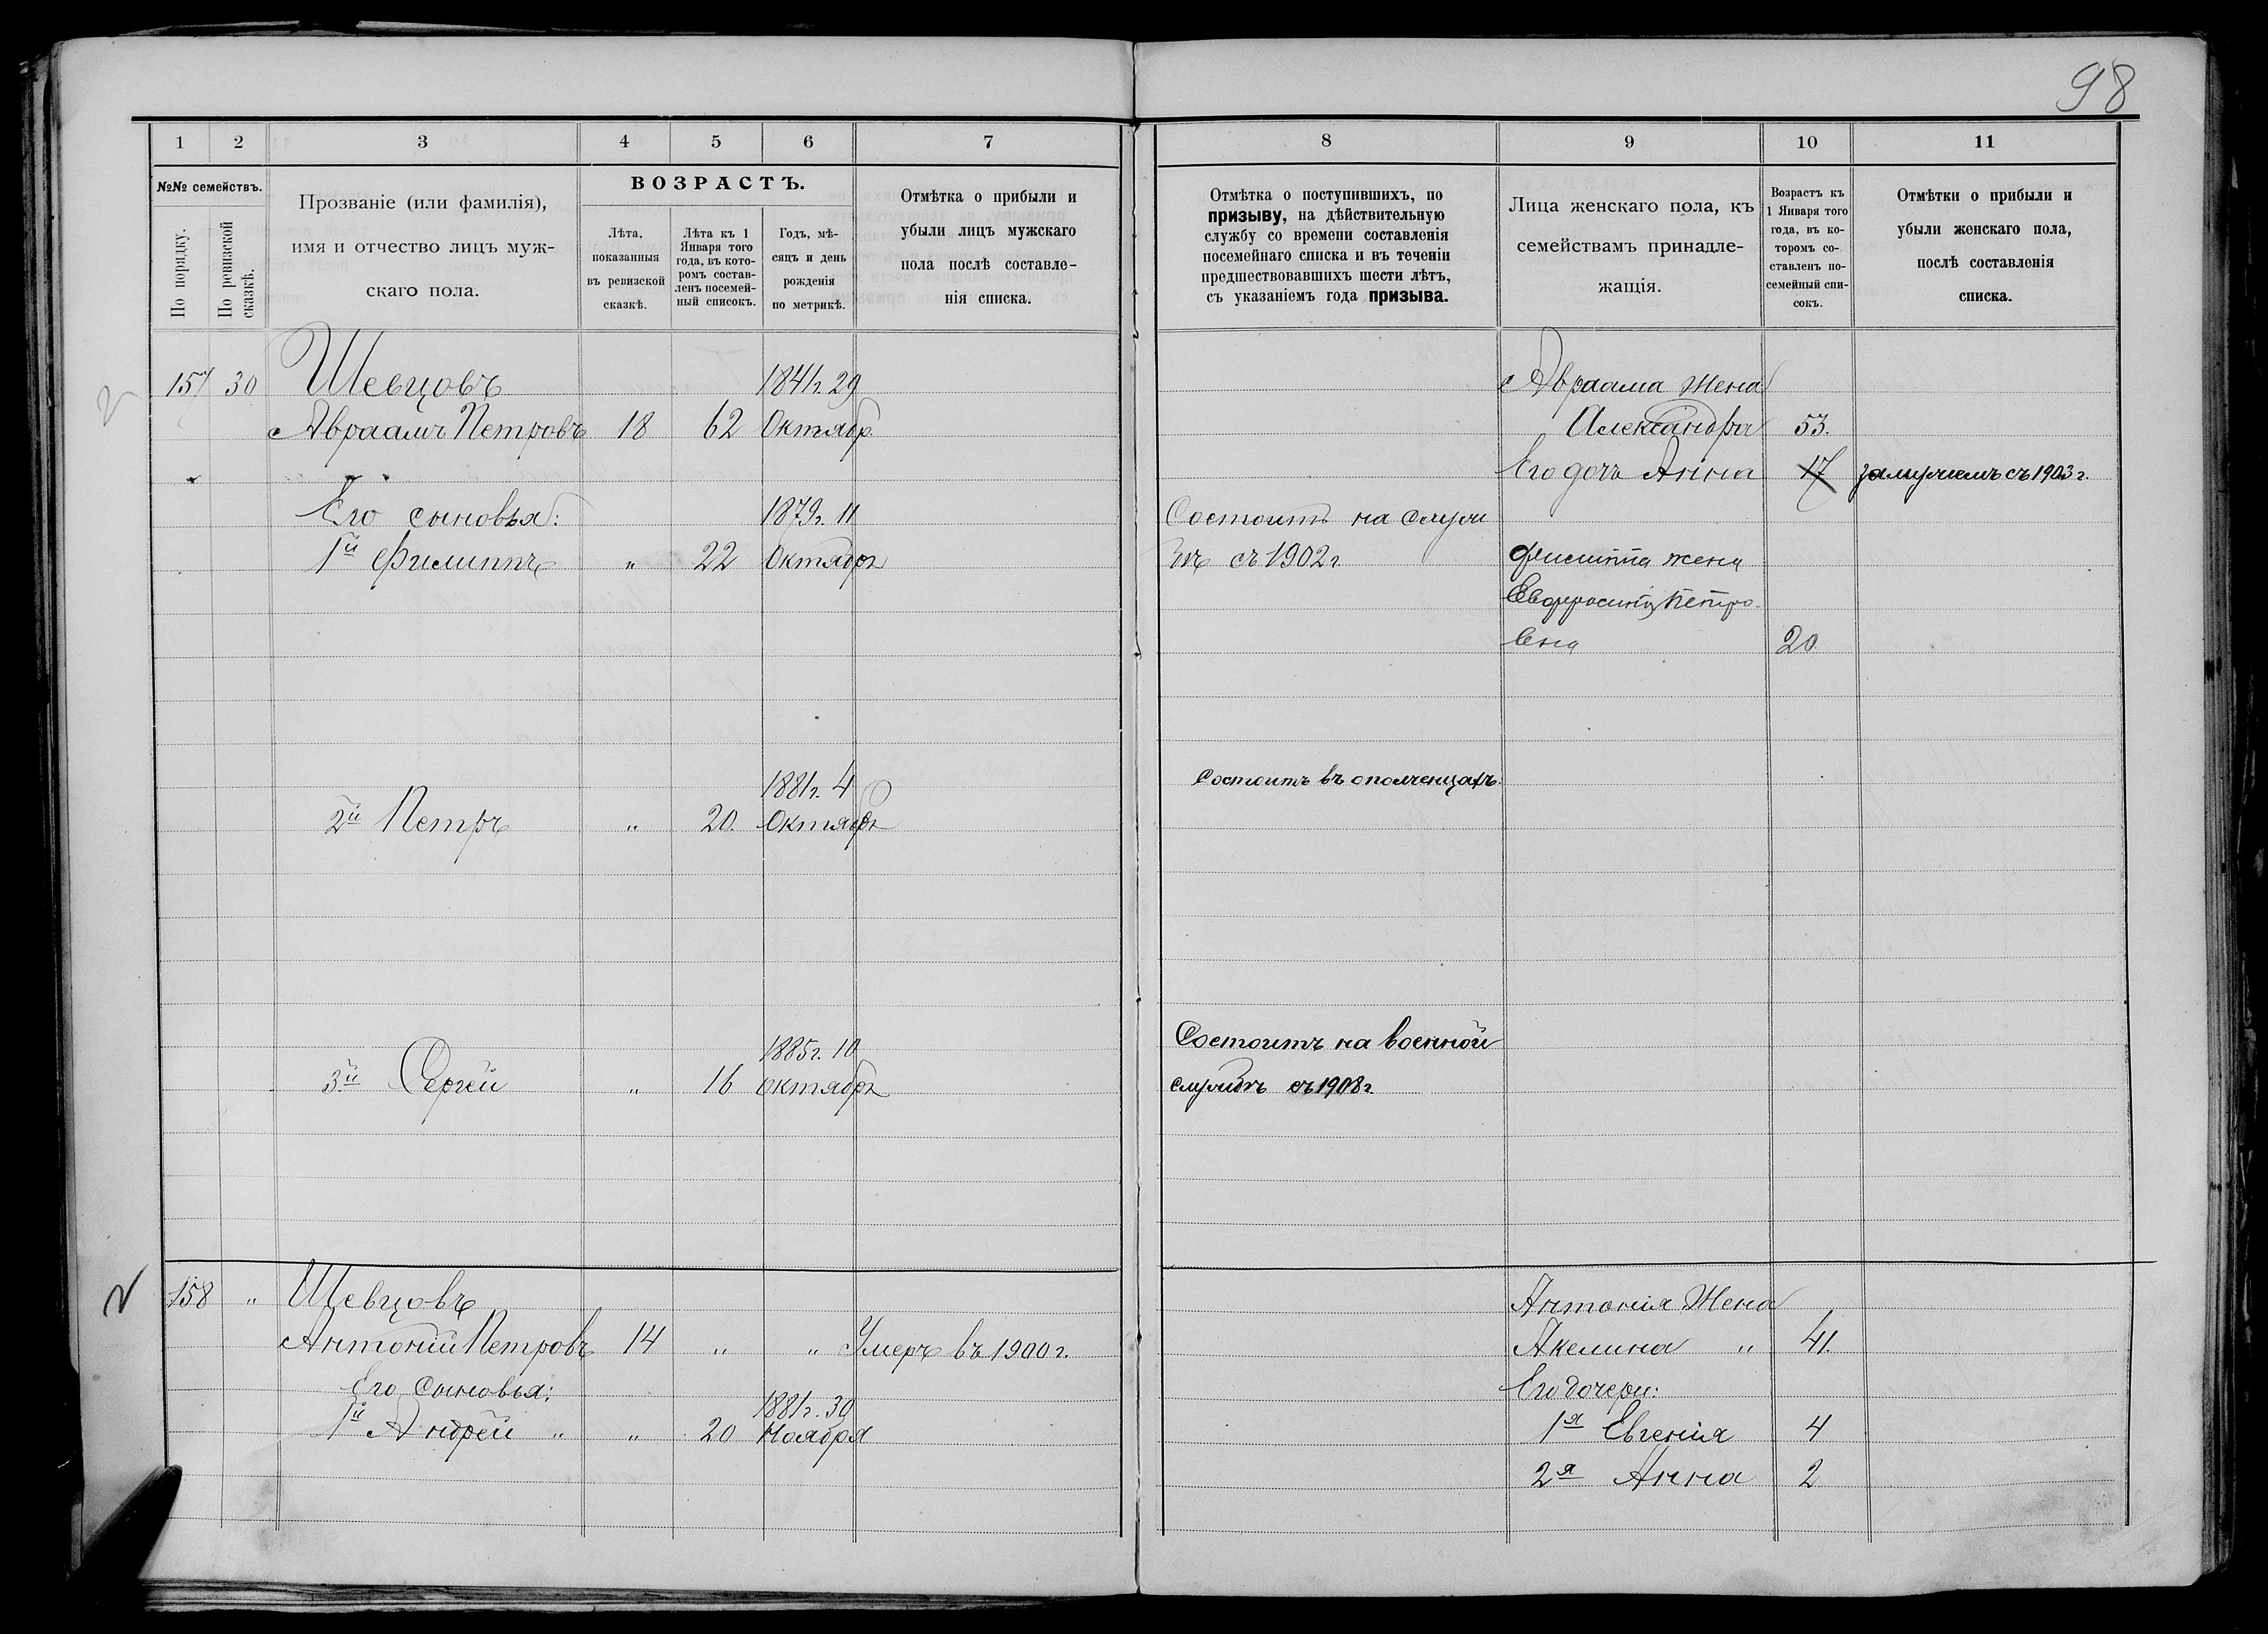 98
1 2 3 4 5 6 7
№№ семействъ.
По порядку.
По ревизской сказкѣ.
Прозваніе (или фамилія),
имя и отчество лицъ муж-
скаго пола.
ВОЗРАСТЪ.
Лѣта,
показанныя
въ ревизской
сказкѣ.
Лѣта къ 1
Января того
года, въ кото-
ромъ состав-
ленъ посемей-
ный списокъ.
Годъ, мѣ-
сяцъ и день
рожденія
по метрикѣ.
Отмѣтка о прибыли и
убыли лицъ мужскаго
пола послѣ составле-
нія списка.
157 30 Шевцовъ 1841г. 29
Авраамъ Петровъ 18 62 Октябр.
Его сыновья: 1879г. 11
1й Филиппъ „ 22 Октябр
1881г. 4
2й Петръ „ 20. Октябр
1885г. 10
3й Сергѣй „ 16 октябр
158 „ Шевцовъ
Антоній Петровъ 14 „ „ Умеръ въ 1900г.
Его сыновья:
1881г. 30
1й Андрей „ „ 20 Ноября
8 9 10 11
Отмѣтка о поступившихъ, по
призыву, на дѣйствительную
службу со времени составленія
посемейнаго списка и въ теченіи
предшествовавшихъ шести лѣтъ,
съ указаніемъ года призыва.
Лица женскаго пола, къ
семействамъ принадле-
жащія.
Возрастъ къ
1 Января того
года, въ ко-
торомъ со-
ставленъ по-
семейный спи-
сокъ.
Отмѣтки о прибыли и
убыли женскаго пола,
послѣ составленія
списка.
Авраама жена
Александра 53.
Его дочь Анна 17 замужемъ съ 1903 г.
Состоитъ на служ
бѣ съ 1902г. Филиппа жена
Евфросинія Петро-
вна 20
Состоитъ въ ополченцахъ.
Состоитъ на военной
службѣ съ 1908г.
Антонія Жена
Акелина „ 41.
Его дочери:
1я Евгенія 4
2я Анна 2